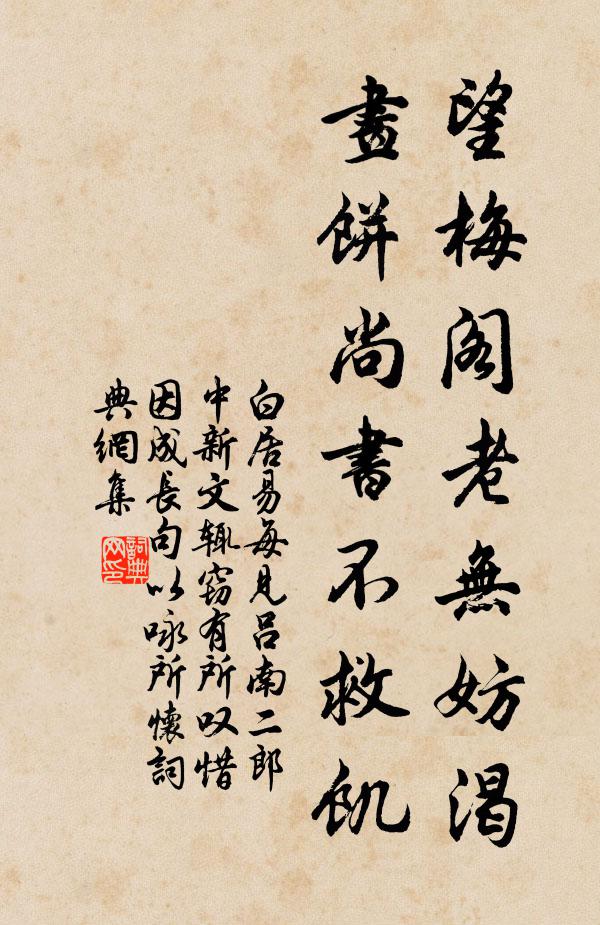 望梅阁老無妨渴
畫餅尚書不救飢
白居易每見吕南二郎
中新文辄窃有所叹惜
因成長句以咏所懷詞
典網集
詞典
网印